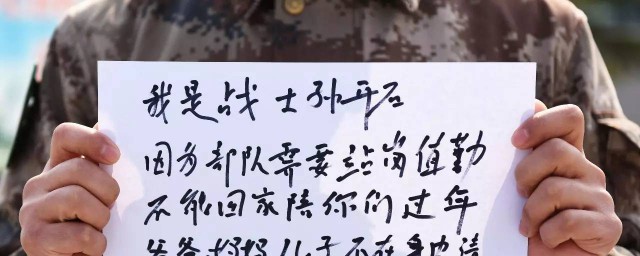 我是战士孙开石
因为部队需要站岗值勤
不能回家陪你们过年
爸爸妈妈儿子不在身边请